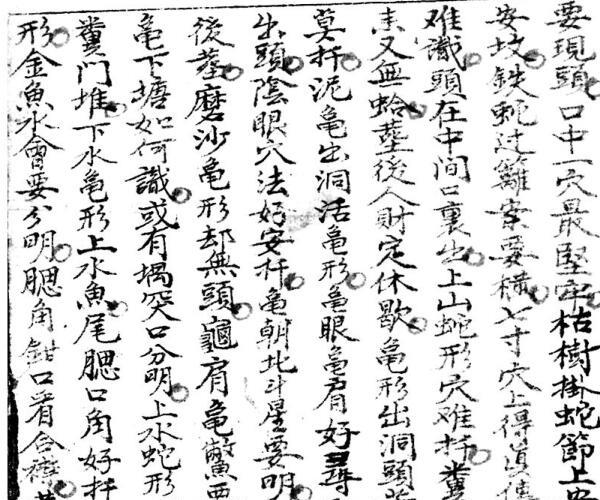 要現頭口中一穴最堅牢枯樹掛蛇節上安
安坟鉄蛇过籬案要横七寸穴上得真
难識頭在中間口裏出上山蛇形穴难扦糞
未又無蛤墓後人財定休歇亀形出洞頭
莫扦泥亀出洞活亀形亀眼亀肩好尋
出頭陰眼穴法好安扦亀朝北斗星要明
後墓磨沙亀形却無頭龜肩亀鱉西
亀下塘如何識或有堨突口分明上水蛇形
糞门堆下水亀形上水魚尾腮口角好扦
形金魚水會要分明腮角鉗口看合襟